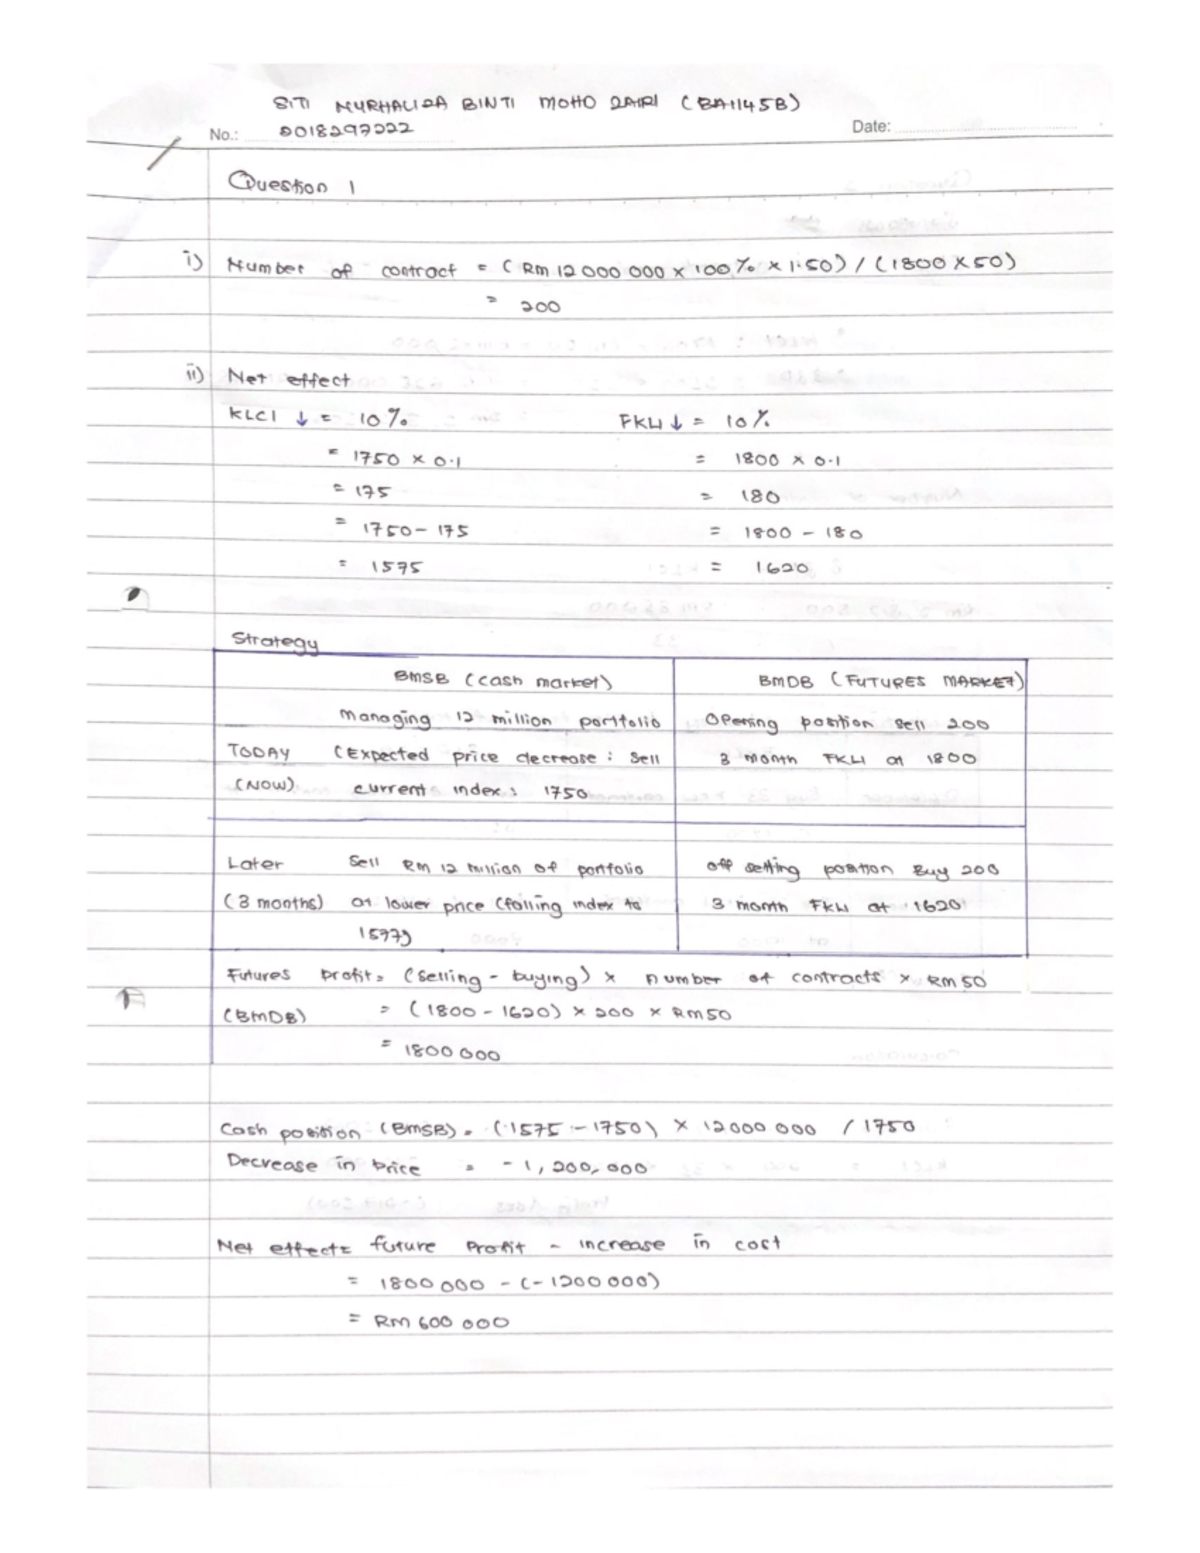 SITI NURHALIZA BINTI MOHD ZAIRI (BA1145B)
No.: 2018297222 Date:
Question 1
i) Number of contract = (RM 12 000 000 x 100% x 1.50) / (1800 x 50)
= 200
ii) Net effect
KLCI ↓ = 10% FKLI ↓ = 10%
= 1750 x 0.1 = 1800 x 0.1
= 175 = 180
= 1750 - 175 = 1800 - 180
= 1575 = 1620
Strategy
BMSB (cash market) BMDB (FUTURES MARKET)
Managing 12 million portfolio Opening position sell 200
TODAY (Expected price decrease : sell 3 month FKLI at 1800
(NOW) current index : 1750
Later Sell RM 12 million of portfolio off setting position Buy 200
(3 months) at lower price (falling index to 3 month FKLI at 1620
Futures Profit = (selling - buying) x number of contracts x RM 50
(BMDB) = (1800 - 1620) x 200 x RM50
= 1800 000
Cash position (BMSB) = (1575 - 1750) x 12000 000 / 1750
Decrease in price = - 1, 200, 000
Net effect = future Profit - increase in cost
= 1800 000 - (- 1200 000)
= RM 600 000